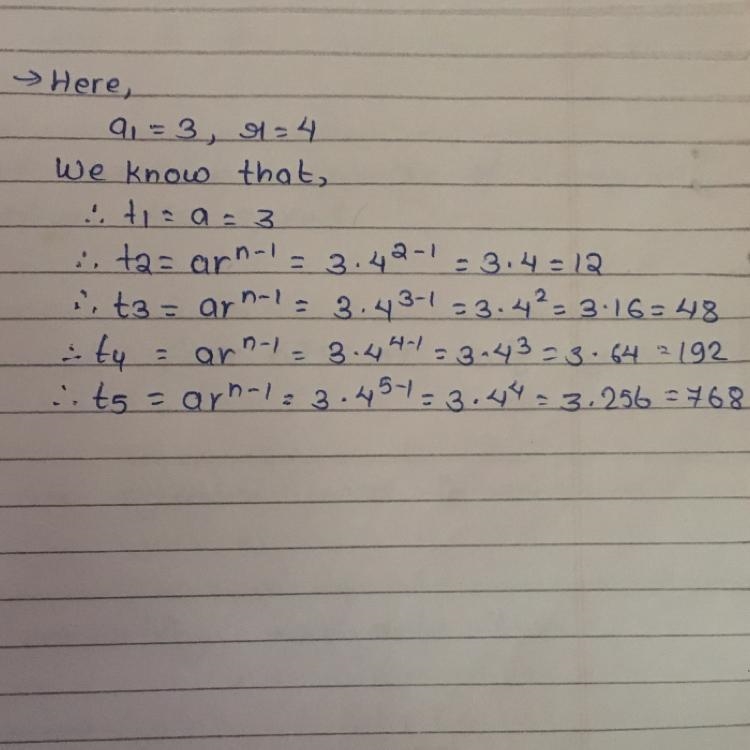 → Here,
a₁ = 3, r = 4
We know that,
∴ t₁ = a = 3
∴ t2 = arⁿ⁻¹ = 3·4²⁻¹ = 3·4 = 12
∴ t3 = arⁿ⁻¹ = 3·4³⁻¹ = 3·4² = 3·16 = 48
∴ t4 = arⁿ⁻¹ = 3·4⁴⁻¹ = 3·4³ = 3·64 = 192
∴ t5 = arⁿ⁻¹ = 3·4⁵⁻¹ = 3·4⁴ = 3.256 = 768